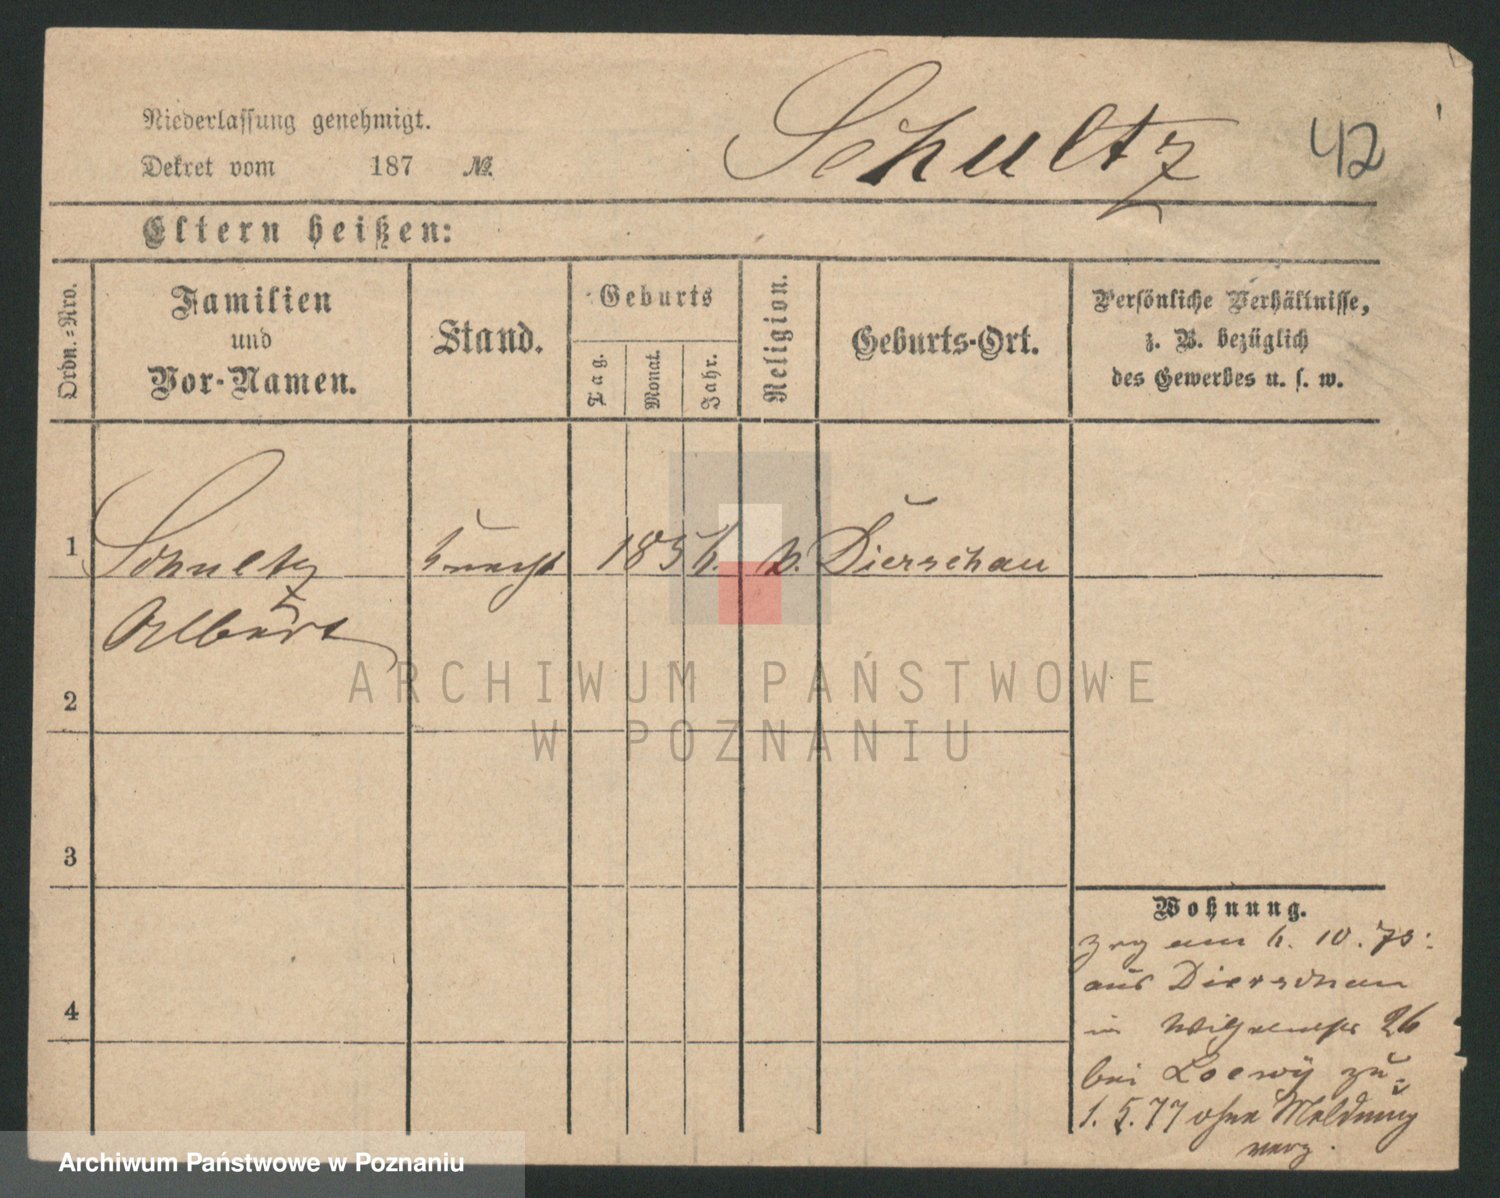 Niederlassung genehmigt.
Schultz
42
Dekret vom 187 №
Eltern heißen:
Ordn.-Nro.
Familien
und
Vor-Namen.
Stand.
Geburts
Tag.
Monat.
Jahr.
Religion.
Geburts-Ort.
Persönliche Verhältnisse,
z. B. bezüglich
des Gewerbes u. s. w.
1
Schultz
Knecht
Dierschau
Albert
2
3
4
ARCHIWUM PAŃSTWOWE
W POZNANIU
Wohnung.
am 10.
aus Dierschau
in 26
bei Loewy
1. 5. 77 ohne Meldung
Archiwum Państwowe w Poznaniu